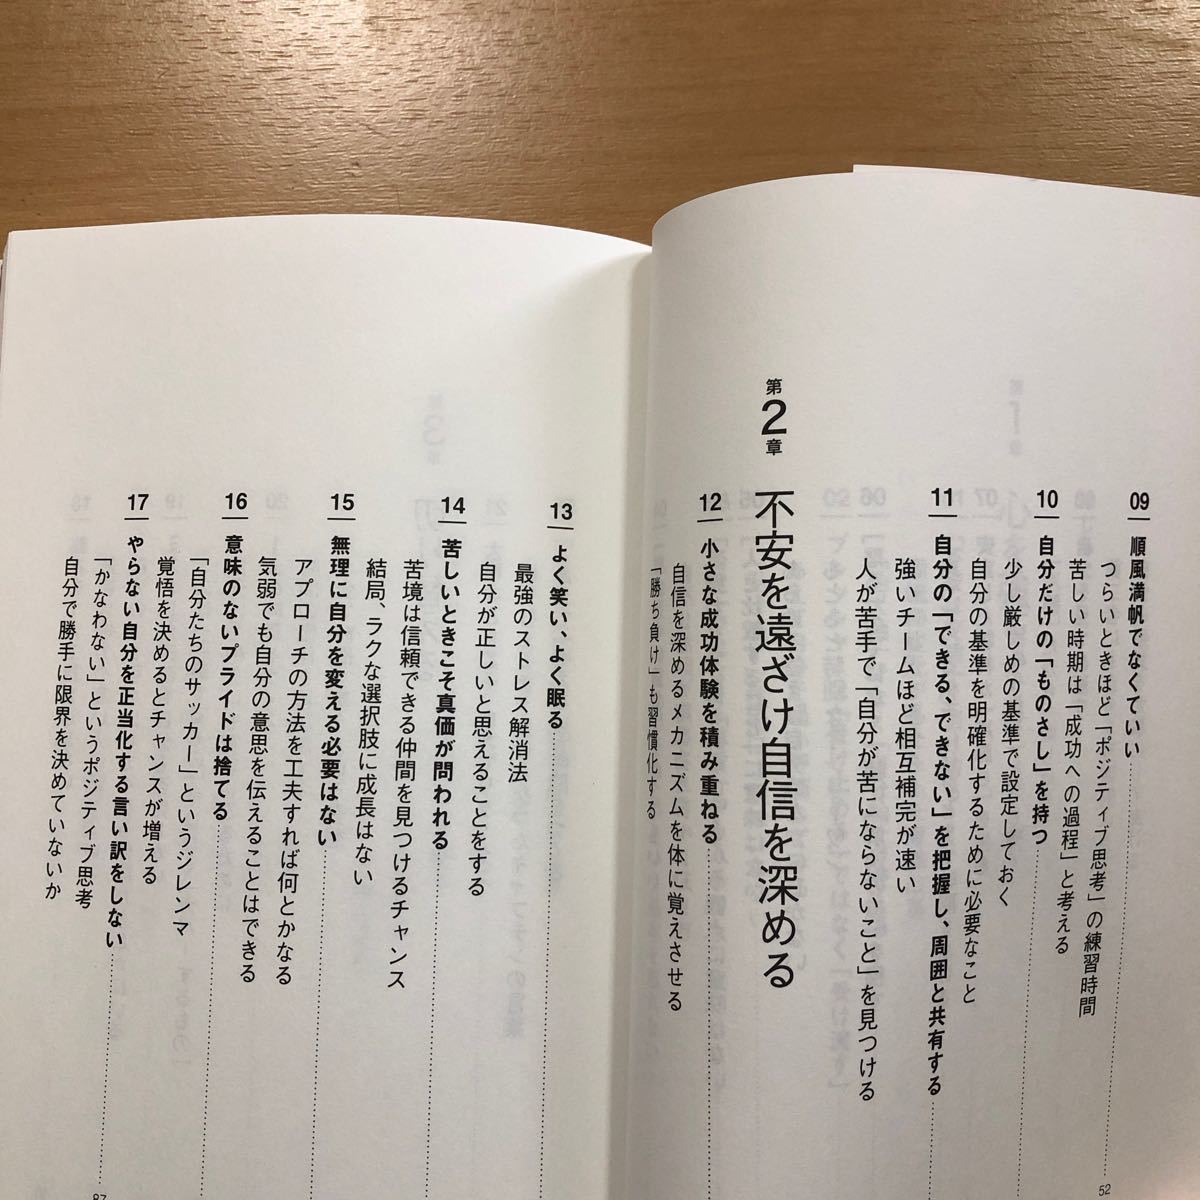 09 順風満帆でなくていい
つらいときほど「ポジティブ思考」の練習時間
苦しい時期は「成功への過程」と考える
52
10 自分だけの「ものさし」を持つ
少し厳しめの基準で設定しておく
自分の基準を明確化するために必要なこと
11 自分の「できる、できない」を把握し、周囲と共有する
強いチームほど相互補完が速い
人が苦手で「自分が苦にならないこと」を見つける
第2章 不安を遠ざけ自信を深める
12 小さな成功体験を積み重ねる
自信を深めるメカニズムを体に覚えさせる
「勝ち負け」も習慣化する
13 よく笑い、よく眠る
最強のストレス解消法
自分が正しいと思えることをする
14 苦しいときこそ真価が問われる
苦境は信頼できる仲間を見つけるチャンス
結局、ラクな選択肢に成長はない
15 無理に自分を変える必要はない
アプローチの方法を工夫すれば何とかなる
気弱でも自分の意思を伝えることはできる
16 意味のないプライドは捨てる
「自分たちのサッカー」というジレンマ
覚悟を決めるとチャンスが増える
17 やらない自分を正当化する言い訳をしない
「かなわない」というポジティブ思考
自分で勝手に限界を決めていないか
87